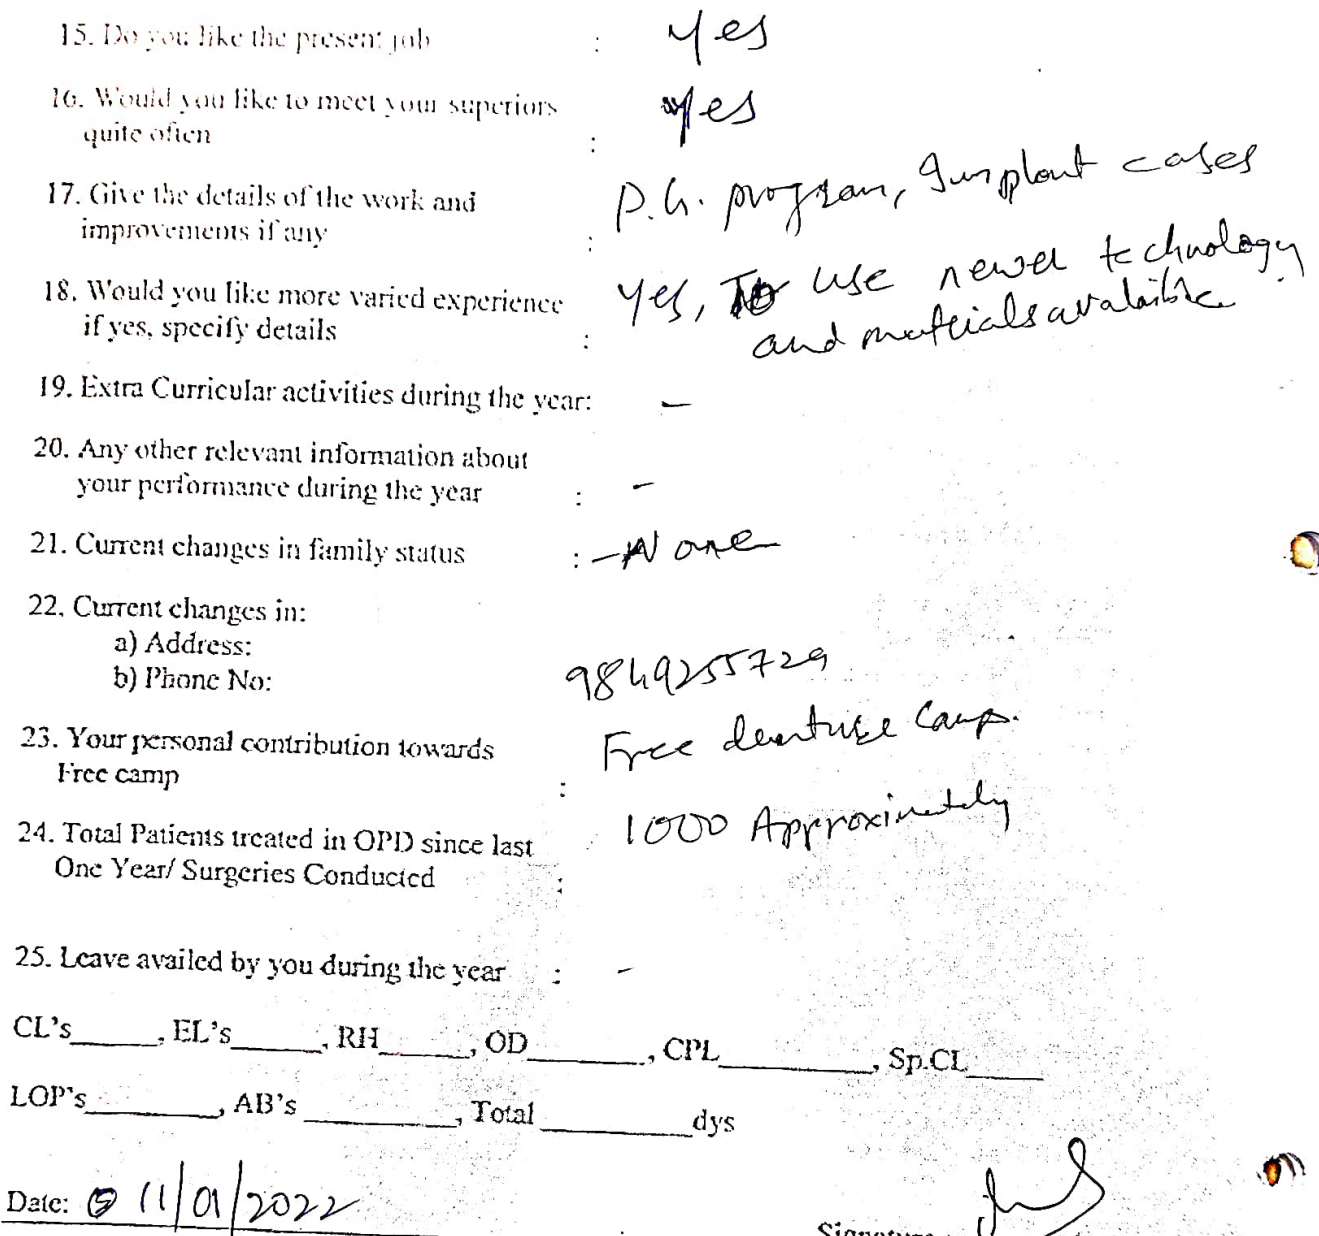 15. Do you like the present job : Yes
16. Would you like to meet your superiors
quite often : Yes
17. Give the details of the work and
improvements if any : P.G. program, Implant cases
18. Would you like more varied experience
if yes, specify details : Yes, To use newer technology
and materials avalaible.
19. Extra Curricular activities during the year: -
20. Any other relevant information about
your performance during the year : -
21. Current changes in family status : - None
22. Current changes in:
a) Address:
b) Phone No: 9849255729
23. Your personal contribution towards
Free camp : Free denture Camp.
24. Total Patients treated in OPD since last
One Year/ Surgeries Conducted : 1000 Approximately
25. Leave availed by you during the year : -
CL's______, EL's______, RH______, OD________, CPL__________, Sp.CL_____
LOP's_________, AB's __________, Total __________dys
Date: 11/01/2022
Signature :